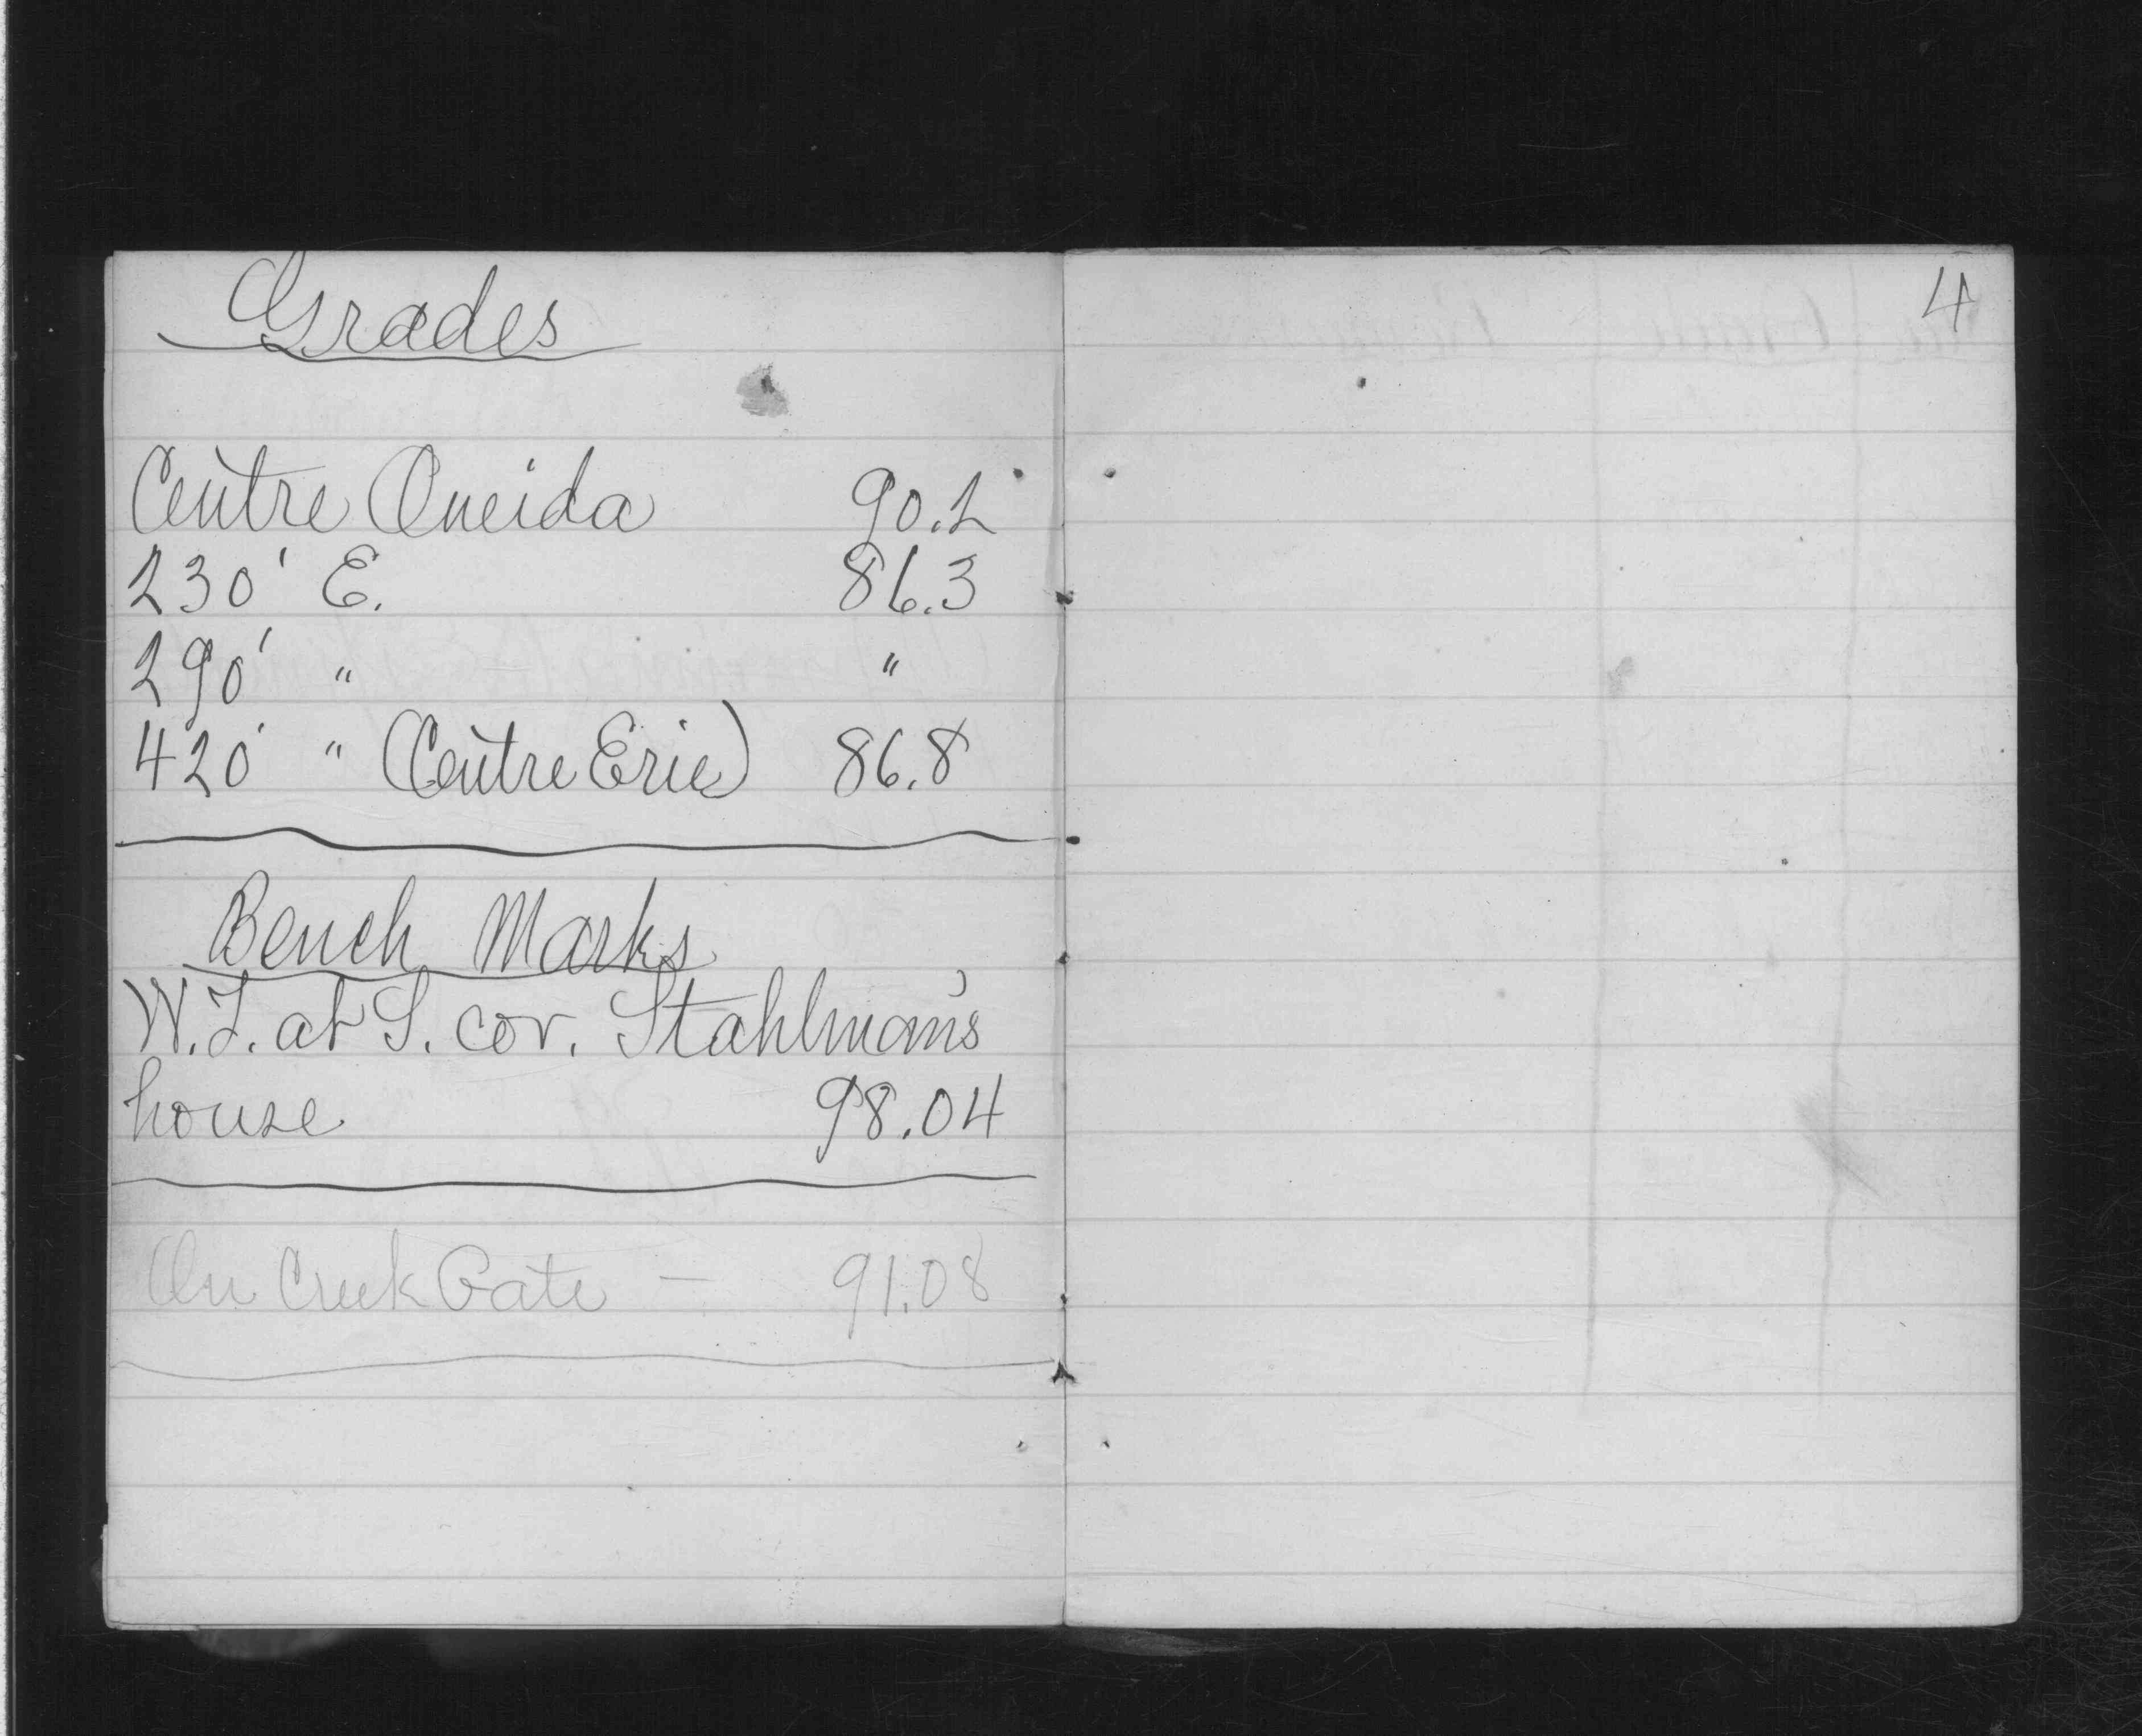 Grades
Centre Oneida 90.2
230' E. 86.3
290' " "
420' " (Centre Erie) 86.8
Bench Marks
W.T. at S. cor. Stahlman's
house 98.04
On Creek Gate — 91.08
4